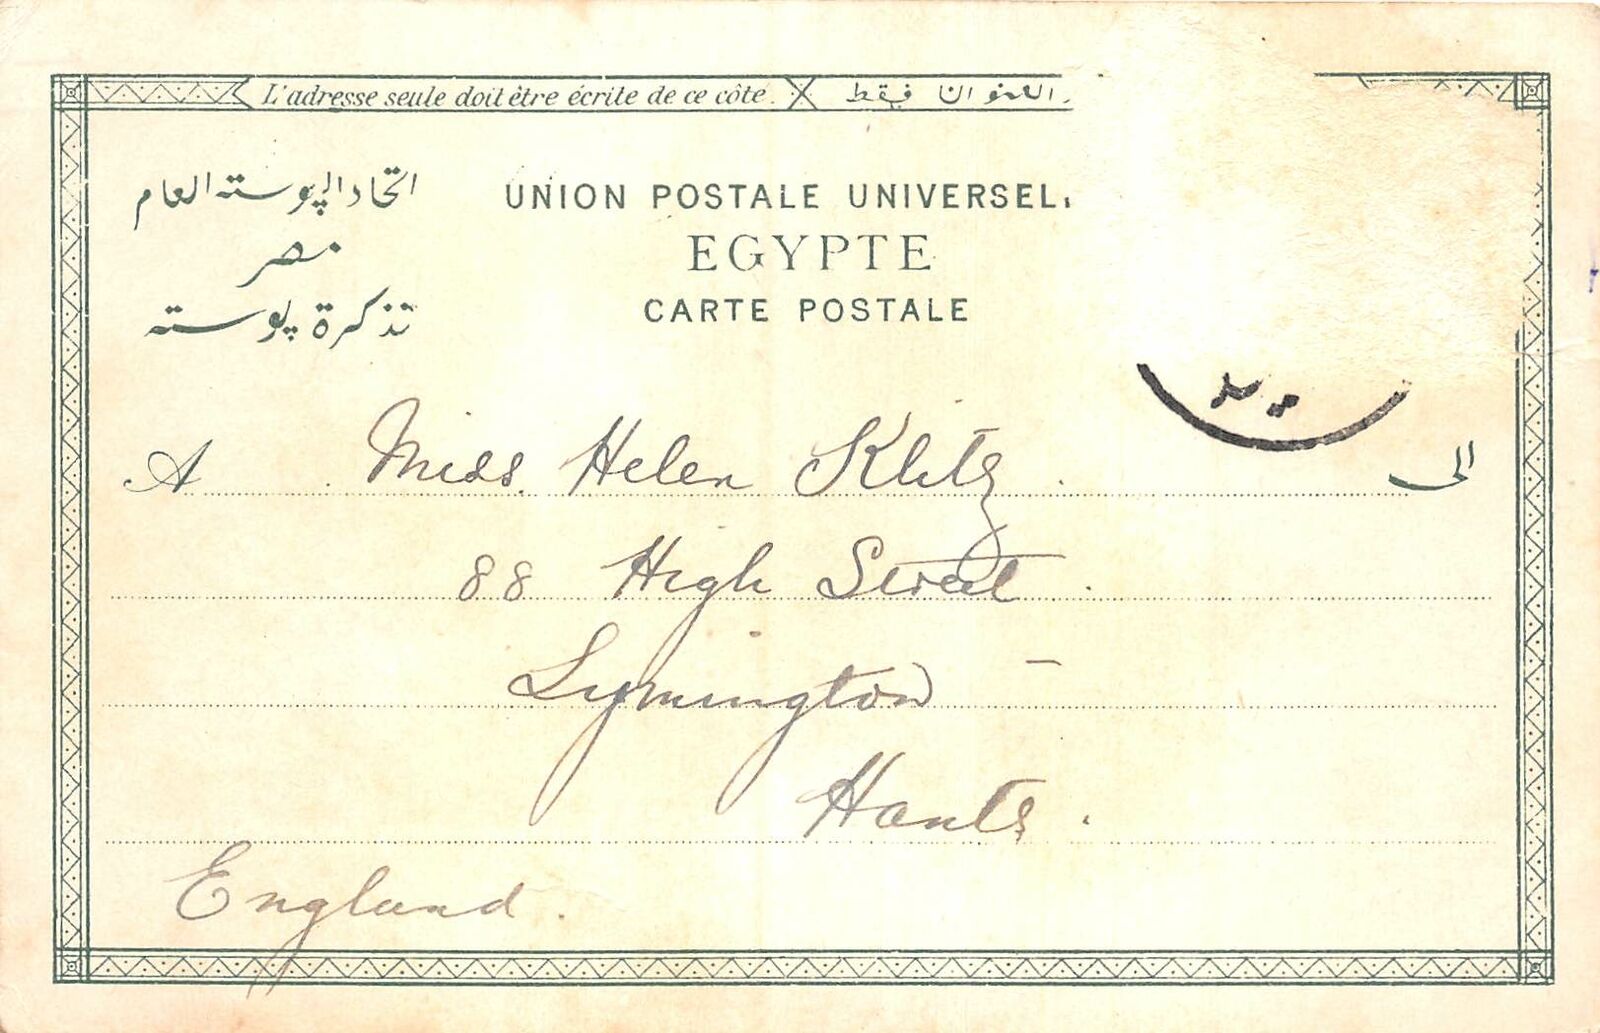 L'adresse seule doit être écrite de ce côté. العنوان فقط
اتحاد البوسته العام
مصر
تذكرة بوسته
UNION POSTALE UNIVERSEL
EGYPTE
CARTE POSTALE
A Miss Helen Klitz الى
88 High Street
Lymington
Hants.
England.